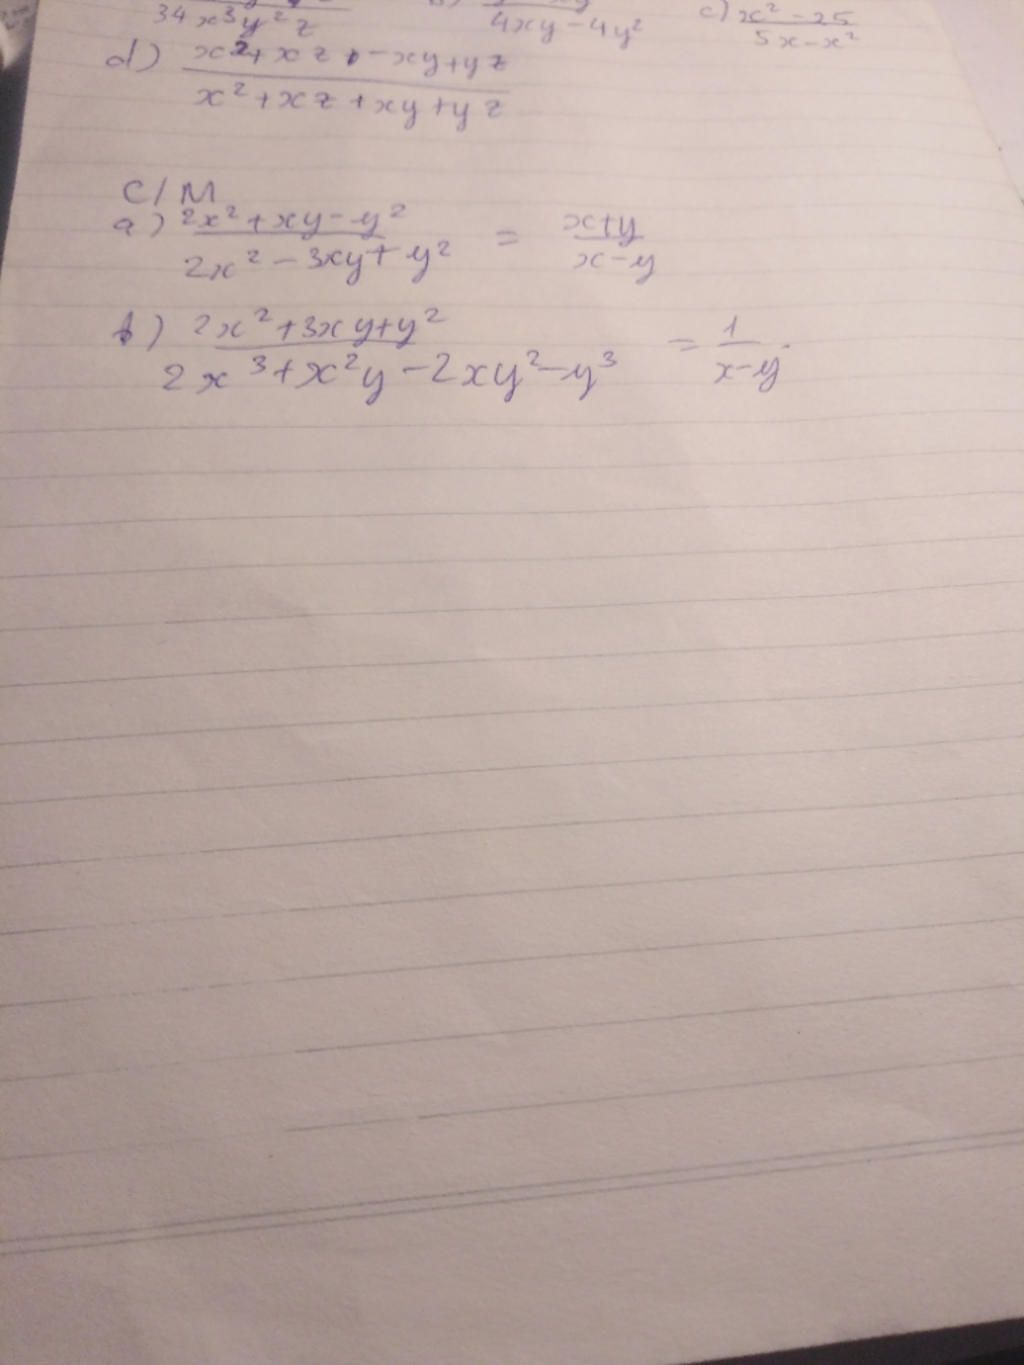 34x³y²z 4xy-4y² c) x²-25 / 5x-x²
d) x²+xz-xy+yz / x²+xz+xy+yz
C/M
a) 2x²+xy-y² / 2x²-3xy+y² = x+y / x-y
b) 2x²+3xy+y² / 2x³+x²y-2xy²-y³ = 1 / x-y.